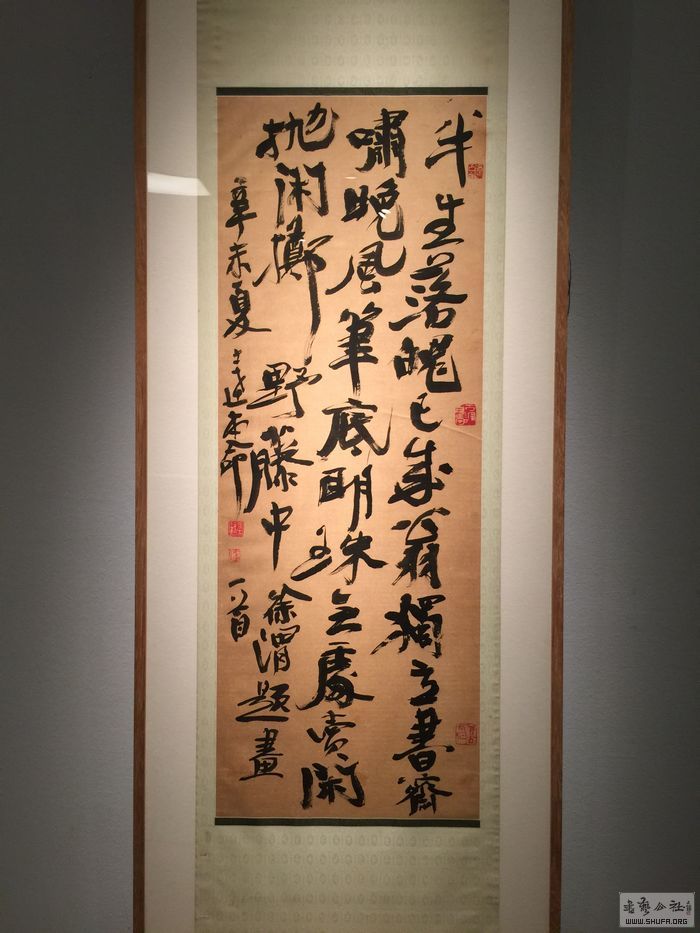 半生落魄已成翁獨立書齋
嘯晚風筆底明珠無處賣閑
拋閑擲野藤中 徐渭題畫
一首
辛未夏
書法公社
WWW.SHUFA.ORG